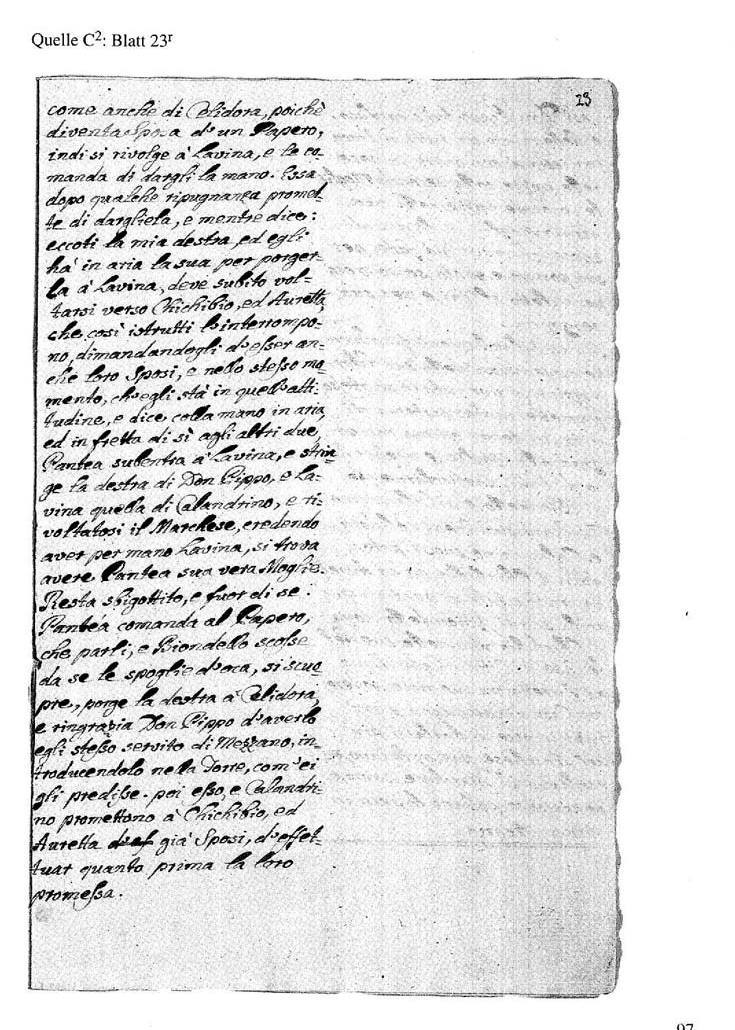 Quelle C²: Blatt 23r
23
come anche di Celidora, poichè
diventa Sposa d'un Papero;
indi si rivolge à Lavina, e le co=
manda di dargli la mano. Essa
dopo qualche ripugnanza promet=
te di dargliela, e mentre dice:
eccoti la mia destra, ed egli
ha' in aria la sua per porger=
la à Lavina, deve subito vol=
tarsi verso Chichibio, ed Auretta,
che così istrutti l'interrompo=
no, dimandandogli d'esser an=
che loro Sposi, e nello stesso mo=
mento, ch'egli stà in quell'atti=
tudine, e dice colla mano in aria,
ed in fretta di sì agli altri due,
Pantea subentra à Lavina, e strin=
ge la destra di Don Pippo, e La=
vina quella di Calandrino, e ri=
voltatosi il Marchese, credendo
aver per mano Lavina, si trova
avere Pantea sua vera Moglie.
Resta sbigottito, e fuor di se.
Pantéa comanda al Papero,
che parli, e Biondello scosse
da se le spoglie d'oca, si scuo=
pre, porge la destra à Celidora,
e ringrazia Don Pippo d'averlo
egli stesso servito di Mezzano, in=
troducendolo nella Torre, com'ei
gli predisse. poi esso, e Calandri=
no promettono à Chichibio, ed
Auretta già Sposi, d'effet=
tuar quanto prima la loro
promessa.
97